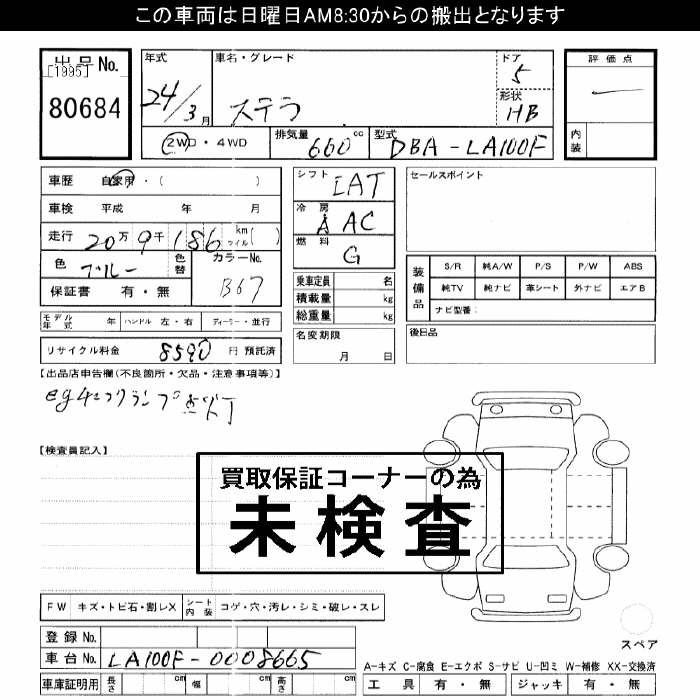 この車両は日曜日AM8:30からの搬出となります
出品No.
[1995]
80684
年式
24/3月
車名・グレード
ステラ
ドア
5
形状
HB
評価点
内装
2WD・4WD
排気量
660cc
型式
DBA-LA100F
車歴 自家用・( )
車検 平成 年 月
走行 20万9千186 km マイル( )
色 ブルー 色替
カラーNo.
B67
保証書 有・無
シフト
IAT
冷房
A AC
燃料
G
乗車定員 名
積載量 kg
総重量 kg
セールスポイント
装備品
S/R 純A/W P/S P/W ABS
純TV 純ナビ 革シート 外ナビ エアB
ナビ型番:
モデル年式 年 ハンドル 左・右 ディーラー・並行
名変期限
月 日
後日品
リサイクル料金 8590円 預託済
【出品店申告欄(不良箇所・欠品・注意事項等)】
egチェックランプ点灯
【検査員記入】
買取保証コーナーの為
未検査
FW キズ・トビ石・割レX シート内装 コゲ・穴・汚レ・シミ・破レ・スレ
スペア
登録No.
車台No. LA100F-0008665
A-キズ C-腐食 E-エクボ S-サビ U-凹ミ W-補修 XX-交換済
車庫証明用 長さ cm 幅 cm 高さ cm
工具 有・無 ジャッキ 有・無